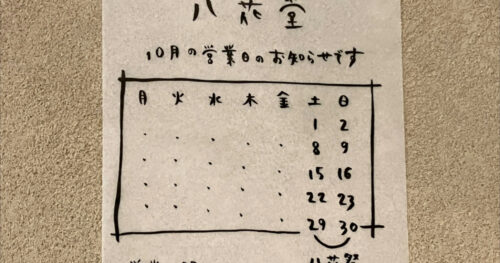 八花堂
10月の営業日のお知らせです
月 火 水 木 金 土 日
1 2
8 9
15 16
22 23
29 30
八花祭